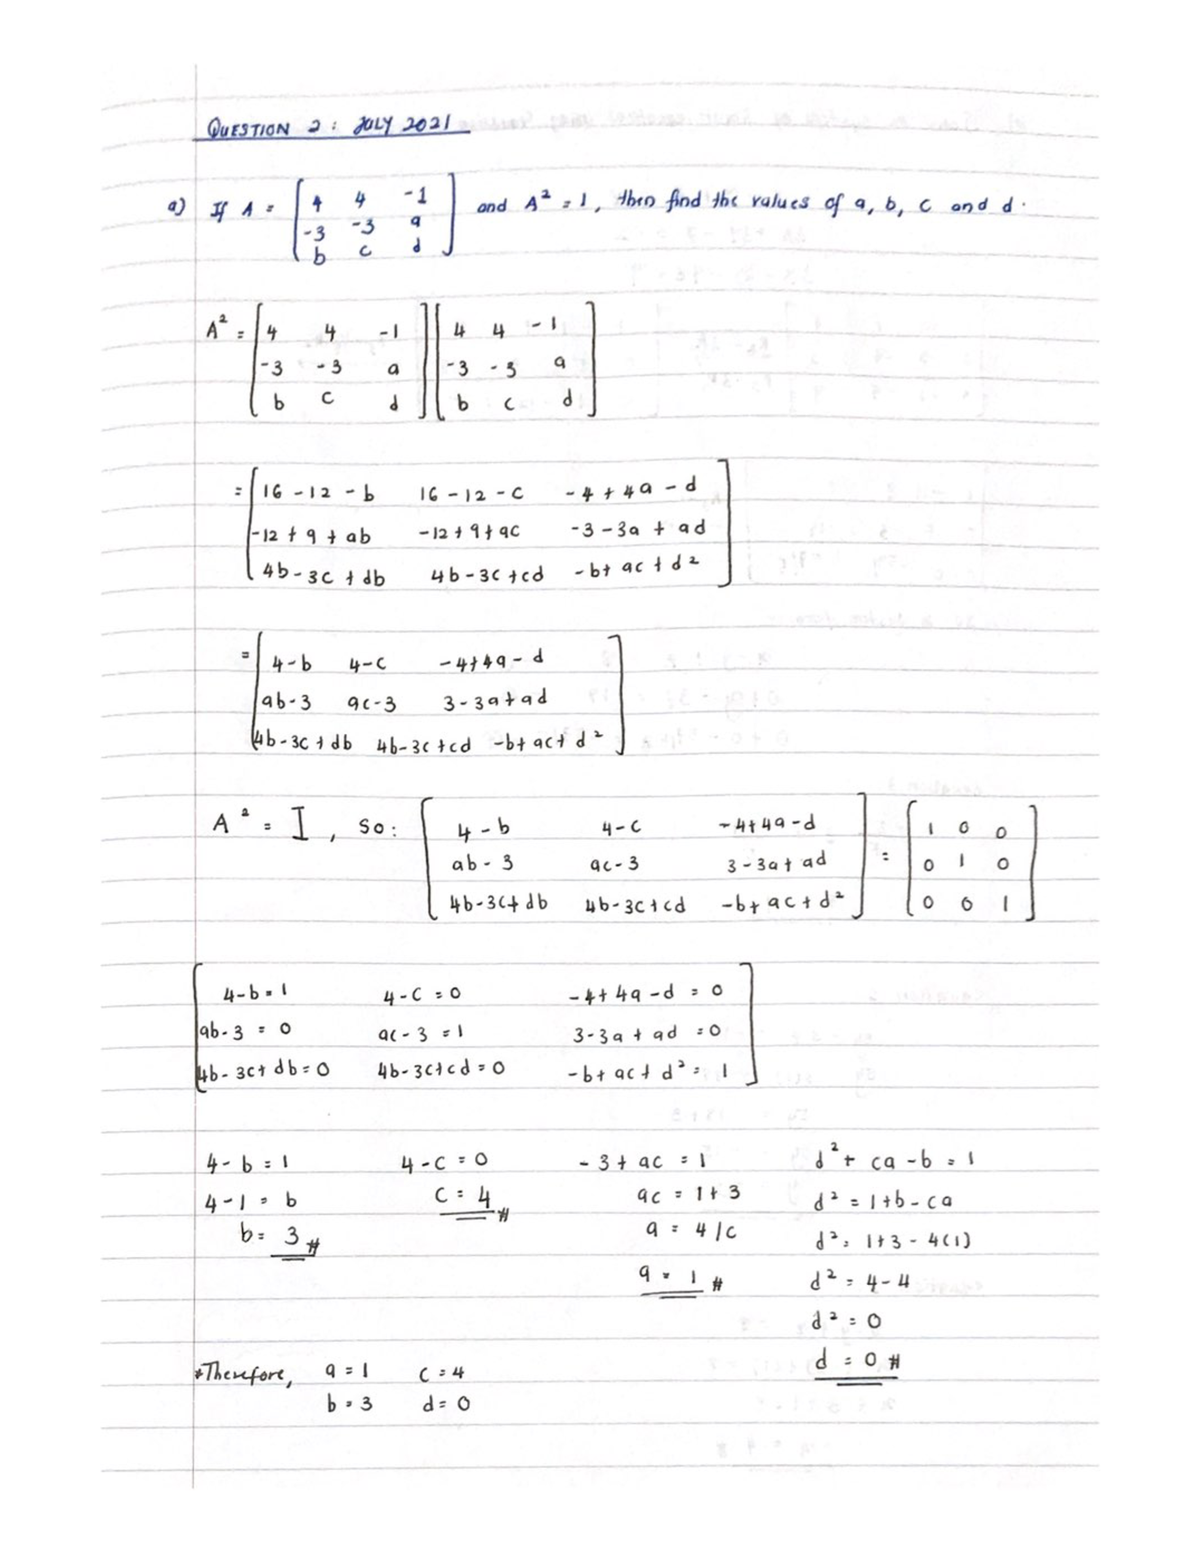 QUESTION 2 : JULY 2021
a) If A = [ 4 4 -1 ] and A² = 1, then find the values of a, b, c and d.
-3 -3 a
b c d
A² = [ 4 4 -1 ] [ 4 4 -1 ]
-3 -3 a -3 -3 a
b c d b c d
= [ 16 - 12 - b 16 - 12 - c - 4 + 4a - d ]
-12 + 9 + ab -12 + 9 + ac -3 - 3a + ad
4b - 3c + db 4b - 3c + cd - b + ac + d²
= [ 4-b 4-c - 4 + 4a - d ]
ab-3 ac-3 3 - 3a + ad
4b-3c + db 4b-3c + cd -b + ac + d²
A² = I , so : [ 4 - b 4 - c - 4 + 4a - d ] = [ 1 0 0 ]
ab - 3 ac - 3 3 - 3a + ad 0 1 0
4b-3c + db 4b-3c + cd -b + ac + d² 0 0 1
[ 4-b = 1 4-c = 0 - 4 + 4a - d = 0 ]
ab-3 = 0 ac-3 = 1 3 - 3a + ad = 0
4b-3c + db = 0 4b-3c + cd = 0 -b + ac + d² = 1
4 - b = 1 4 - c = 0 - 3 + ac = 1 d² + ca - b = 1
4 - 1 = b c = 4 # ac = 1 + 3 d² = 1 + b - ca
b = 3 # a = 4/c d² = 1 + 3 - 4(1)
a = 1 # d² = 4 - 4
d² = 0
*Therefore, a = 1 c = 4 d = 0 #
b = 3 d = 0